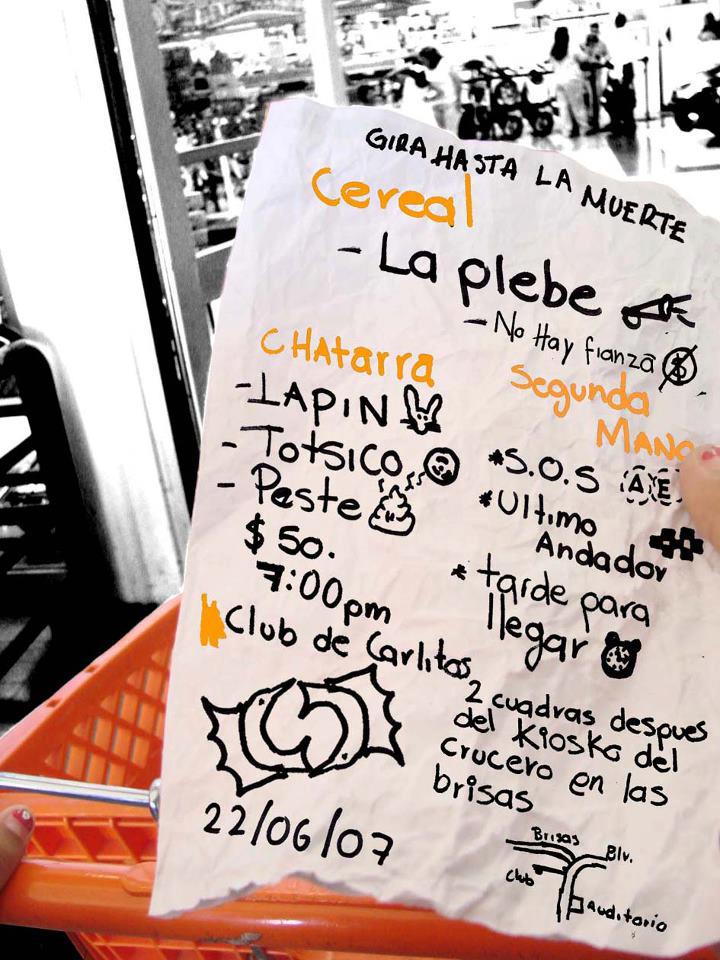 GIRA HASTA LA MUERTE
Cereal
- La plebe
- No Hay fianza $
CHAtarra
- LAPIN
- TotsiCO
- Peste
$50.
7:00pm
Club de Carlitos
Segunda
MANO
*S.O.S A E
*Ultimo
Andador
* tarde para
llegar
2 cuadras despues
del Kiosko del
crucero en las
brisas
22/06/07
Brisas
Blv.
Club
Auditorio